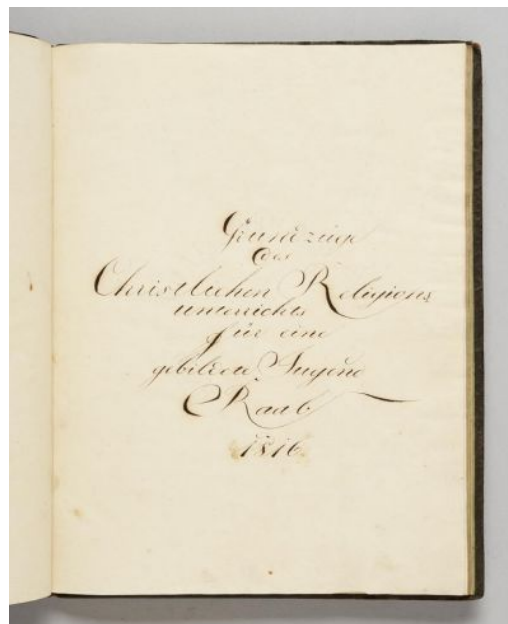 Grundzüge
des
Christlichen Religions
unterrichts
für eine
gebildete Jugend
Raab
1816